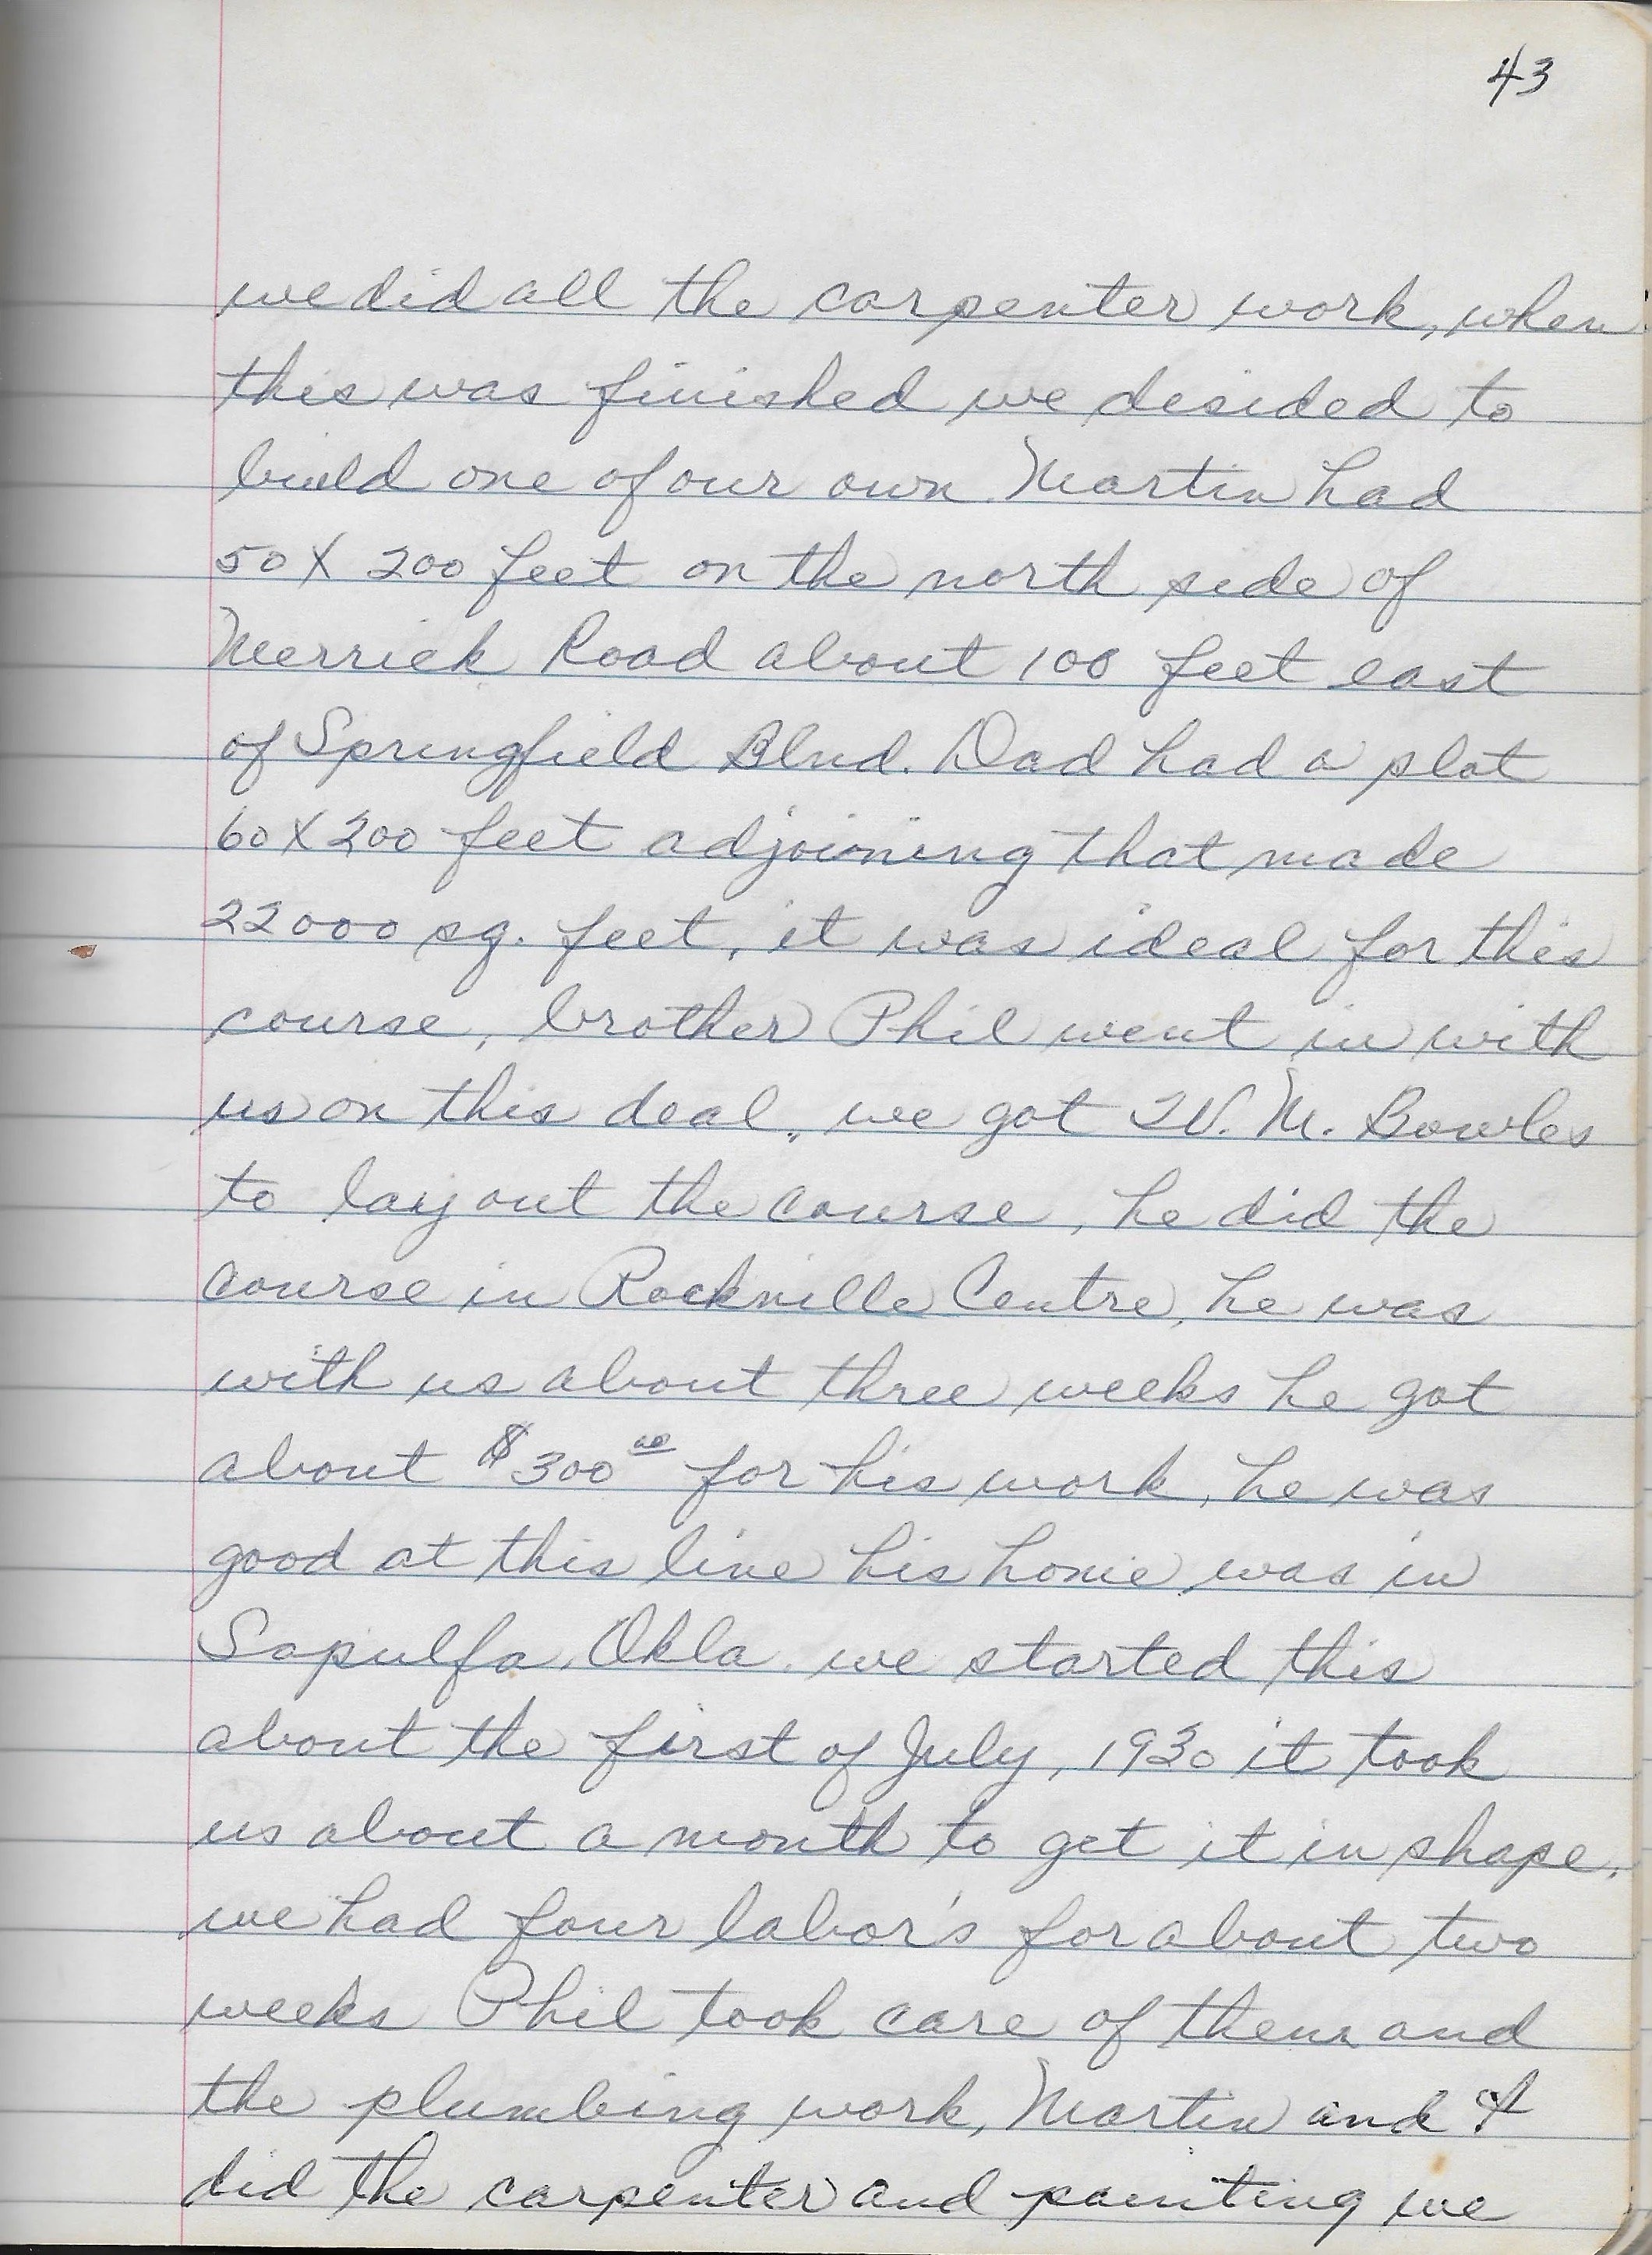 43
we did all the carpenter work, when
this was finished we desided to
build one of our own. Martin had
50 X 200 feet on the north side of
Merrick Road about 100 feet east
of Springfield Blvd. Dad had a plot
60 X 200 feet adjoining that made
22000 sq. feet, it was ideal for this
course, brother Phil went in with
us on this deal, we got W. M. Bowles
to lay out the course, he did the
course in Rockville Centre, he was
with us about three weeks he got
about $300 00 for his work, he was
good at this line his home was in
Sapulfa, Okla. we started this
about the first of July, 1930 it took
us about a month to get it in shape,
we had four labor's for about two
weeks Phil took care of them and
the plumbing work, Martin and I
did the carpenter and painting we